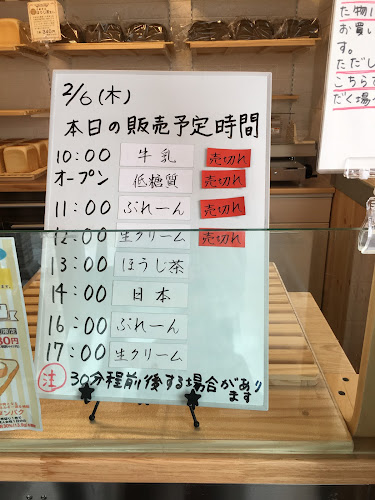 2/6(木)
本日の販売予定時間
10:00 牛乳 売切れ
オープン 低糖質 売切れ
11:00 ぷれーん 売切れ
12:00 生クリーム 売切れ
13:00 ほうじ茶
14:00 日本
16:00 ぷれーん
17:00 生クリーム
注 30分程前後する場合があり
ます
た物
お買い
す。
ただし
こちらで
だく場